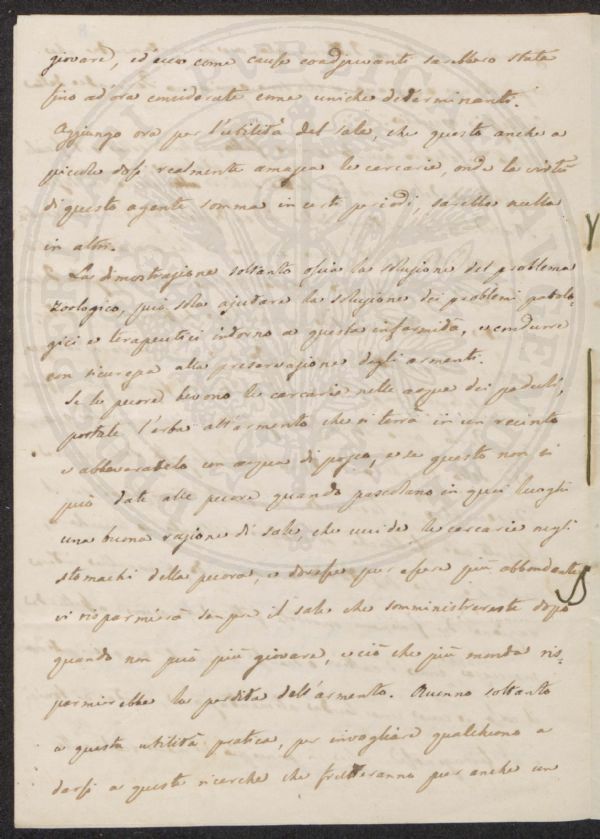 giovare, ed ecco come cause coadjuvanti sarebbero state
fino ad ora considerate come uniche determinanti.
Aggiungo ora per l'utilità del sale, che questo anche a
piccole dosi realmente amazza le cercarie, onde la virtù
di questo agente somma in certi periodi, sarebbe nulla
in altri.
La dimostrazione soltanto ossia la soluzione del problema
Zoologico, può sola ajutare la soluzione dei problemi patolo-
gici e terapeutici intorno a questa infermità, e condurre
con sicurezza alla preservazione degli armenti.
Se le pecore bevono le cercarie nelle acque dei paduli,
portate l'erba all'armento che si terrà in un recinto
e abbeveratelo con acqua di pozzo, e se questo non si
può date alle pecore quando pascolano in quei luoghi
una buona razione di sale, che uccide le cercarie negli
stomachi della pecora, e dovesse per essere più abbondante
vi risparmierà sempre il sale che somministrereste dopo
quando non può più giovare, e ciò che più monta ris-
parmierebbe la perdita dell'armento. Accenno soltanto
a questa utilità pratica, per invogliare qualcheuno a
darsi a queste ricerche che frutteranno pur anche un